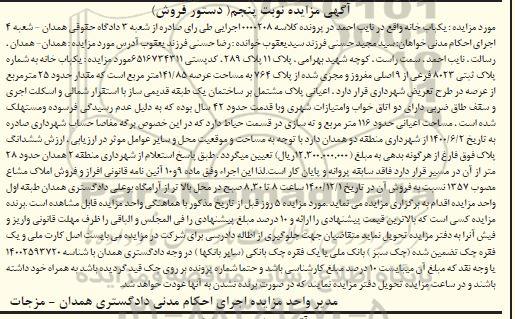 آگهی مزایده نوبت پنجم( دستور فروش)
مورد مزایده : یکباب خانه واقع در نایب احمد در پرونده کلاسه ۰۰۰۰۲۰۸ اجرایی طی رای صادره از شعبه ۳ دادگاه حقوقی همدان - شعبه ۴
اجرای احکام مدنی خواهان:سید مجید حسنی فرزند سید یعقوب خوانده : رضا حسنی فرزند یعقوب آدرس مورد مزایده : همدان - همدان ،
رسالت ، نایب احمد ، سمت راست ، کوچه شهید بهرامی ، پلاک ۱۱ پلاک ۲۸۹ ، کدپستی ۶۵۱۶۷۳۴۳۱۱مورد مزایده : یکباب خانه به شماره
پلاک ثبتی ۸۰۲۳ فرعی از ۹ اصلی مفروز و مجزی شده از پلاک ۷۶۴ به مساحت عرصه ۱۴۱/۸۵متر مربع است که مقدار حدود ۲۵ مترمربع
از عرصه در طرح تعریض شهرداری قرار دارد . اعیانی پلاک مشتمل بر ساختمان یک طبقه قدیمی ساز با استقرار شمالی و اسکلت اجری
و سقف طاق ضربی دارای دو اتاق خواب وامتیازات شهری وبا قدمت حدود ۴۲ سال بوده که به دلیل عدم رسیدگی فرسوده ومستهلک
شده است . مساحت اعیانی حدود ۱۱۶ متر مربع و ته سازی در قسمت حیاط دارد که در این خصوص برگه مفاصا حساب شهرداری صادره
به تاریخ ۱۴۰۰/۶/۲ از شهرداری منطقه دو همدان دارد با توجه به مساحت و موقعیت محل و سایر عوامل موثر در ارزیابی ، ارزش ششدانگ
پلاک فوق فارغ از هرگونه بدهی به مبلغ (۱۲,۳۰۰,۰۰۰,۰۰۰ریال) تعیین میگردد .طبق پاسخ استعلام از شهرداری منطقه ۲ همدان حدود ۲۸
متر از آن در مسیر قرار دارد فاقد سابقه پروانه و پایان کار است.لذا این اجراء وفق ماده ۹و۱۰ آئین نامه قانونی افراز و فروش املاک مشاع
مصوب ۱۳۵۷ نسبت به فروش آن در تاریخ ۱۴۰۰/۱۲/۱ ساعت ۸ تا ۸,۳۰ صبح در محل بالا تر از آرامگاه بوعلی دادگستری همدان طبقه اول
واحد مزایده اقدام به برگزاری مزایده می نماید .مورد مزایده ۵ روز قبل از تاریخ مذکور با هماهنگی واحد مزایده قابل مشاهده است.برنده
مزایده کسی است که بالاترین قیمت پیشنهادی را ارائه و ۱۰ درصد مبلغ پیشنهادی را فی المجلس و الباقی را ظرف مهلت قانونی واریز و
فیش آنرا به دفتر مزایده تحویل نماید متقاضیان جهت جلوگیری از اطاله دادرسی برای شرکت در مزایده می بایست اصل کارت ملی و یک
فقره چک تضمین شده (چک سبز ) بانک ملی یا یک فقره چک بانکی (سایر بانکها ) در وجه دادگستری همدان با شناسه ۱۴۰۰۲۵۹۳۷۲۰
یا وجه نقد که مبلغ آن میبایست ۱۰ درصد مبلغ کارشناسی باشد و حتما شماره پرونده بر روی چک قید گردیده باشد به همراه خود داشته
باشند و در ساعت مزایده تحویل دفتر مزایده نمایند که در صورت برنده نشدن به آنها عودت خواهد شد.
مدیر واحد مزایده اجرای احکام مدنی دادگستری همدان - مزجات